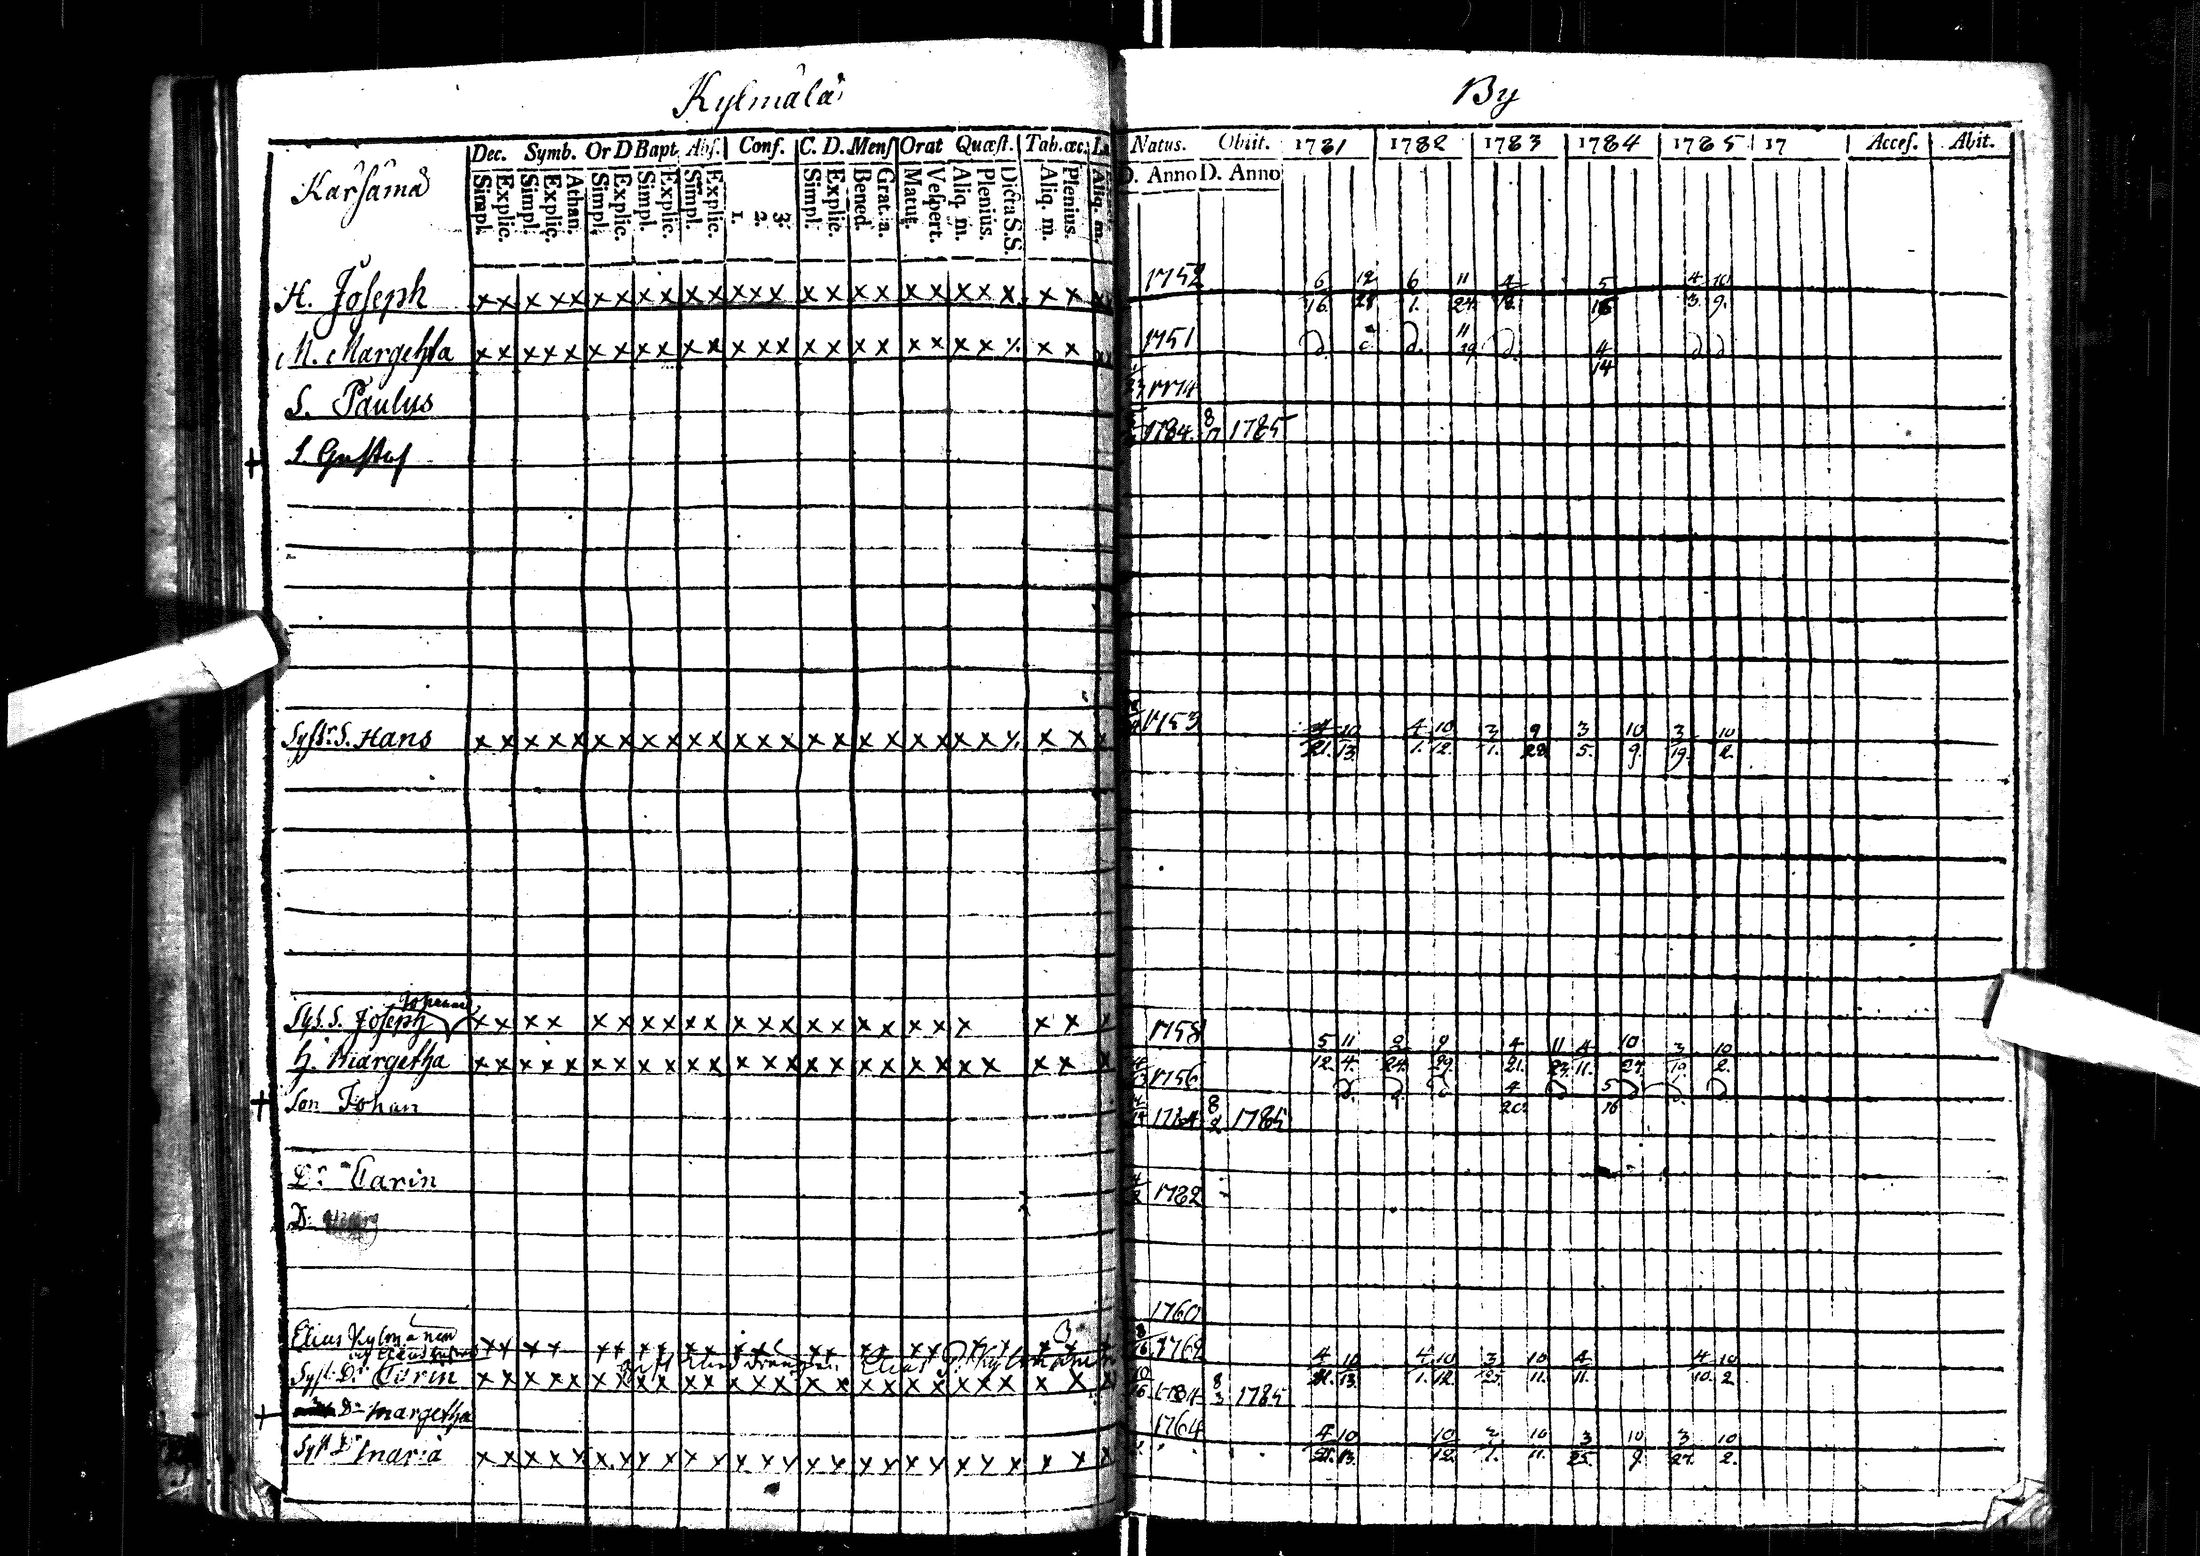 Kylmälä
By
Karsama
Dec. Symb. Or D Bapt. Abs. Conf. C. D. Mens Orat Quæst. Tab. œc.
Simpl. Explic. Simpl. Explic. Athan. Simpl. Explic. Simpl. Explic. Simpl. Explic. 1. 2. 3. Simpl. Explic. Bened. Grat. a. Matut. Vespert. Aliq. m. Plenius. Dicta S.S. Aliq. m. Plenius. Aliq. m.
Natus. Obiit. 1781 1782 1783 1784 1785 17 Acces. Abit.
D. Anno D. Anno
H. Joseph x x x x x x x x x x x x x x x x x x x x x x x x x 1752 6/16. 12/28 6/1. 11/24. 5/16 4/3. 10/9.
M. Margetha x x x x x x x x x x x x x x x x x x x x x x x 1751 d. d. 11/19 d. 4/14 d d
S. Paulus 1774
+ S. Gustaf 1784. 8/17 1785
Syst:r S. Hans x x x x x x x x x x x x x x x x x x x x x x x x 1753 4/21. 10/13. 4/1. 10/12. 3/1. 9/28 3/5. 10/9. 3/19. 10/2.
Johanns
Sys. S. Joseph x x x x x x x x x x x x x x x x x x x x x x 1758 5/12. 11/4. 9/29. 4/21. 11/23. 4/11. 10/27. 3/19. 10/2.
H. Margetha x x x x x x x x x x x x x x x x x x x x x x x x 1756 d. d. 4/20. d 5/16 d d. d
+ Son Johan 1784 8/2 1785
D:r Carin 1782
D:
Elias Kylmänen x x x x x x x x x x x x 1760
Syst. D:r Carin x x x x x x x x x x x x x x x x x x x x x x x x 1762 4/21. 10/13. 4/1. 10/12. 3/25. 10/11. 4/11. 4/10. 10/2
+ D:r Margetha 1784 8/3 1785
Syst D:r Maria x x x x x x x x x x x x x x x x x x x x x x x x 1764 4/21. 10/13. 10/12. 10/11. 3/25. 10/9 3/27. 10/2.